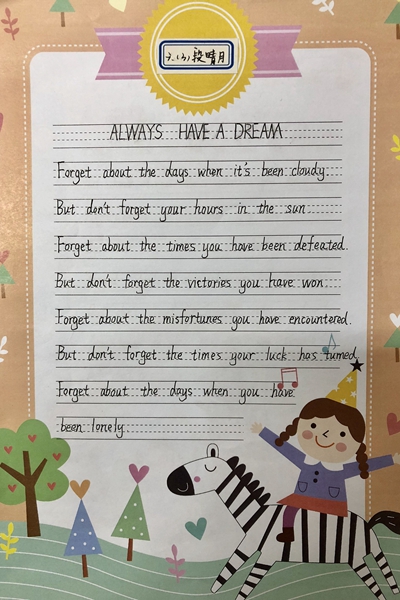 七(3)段晴月
ALWAYS HAVE A DREAM
Forget about the days when it's been cloudy.
But don't forget your hours in the sun
Forget about the times you have been defeated.
But don't forget the victories you have won.
Forget about the misfortunes you have encountered.
But don't forget the times your luck has turned.
Forget about the days when you have
been lonely